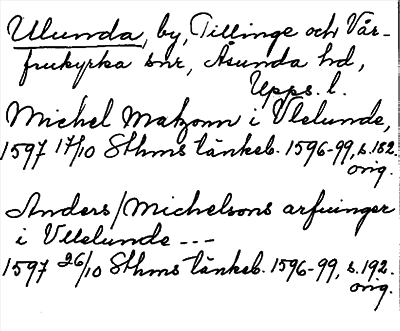 Ulunda, by, Tillinge och Vår-
frukyrka snr, Åsunda hd,
Upps. l.
Michel Matzonn i Vlelunde,
1597 17/10 Sthms tänkeb. 1596-99, s. 182.
orig.
Anders Michelsons arfuinger
i Vllelunde ---
1597 26/10 Sthms tänkeb. 1596-99, s. 192.
orig.